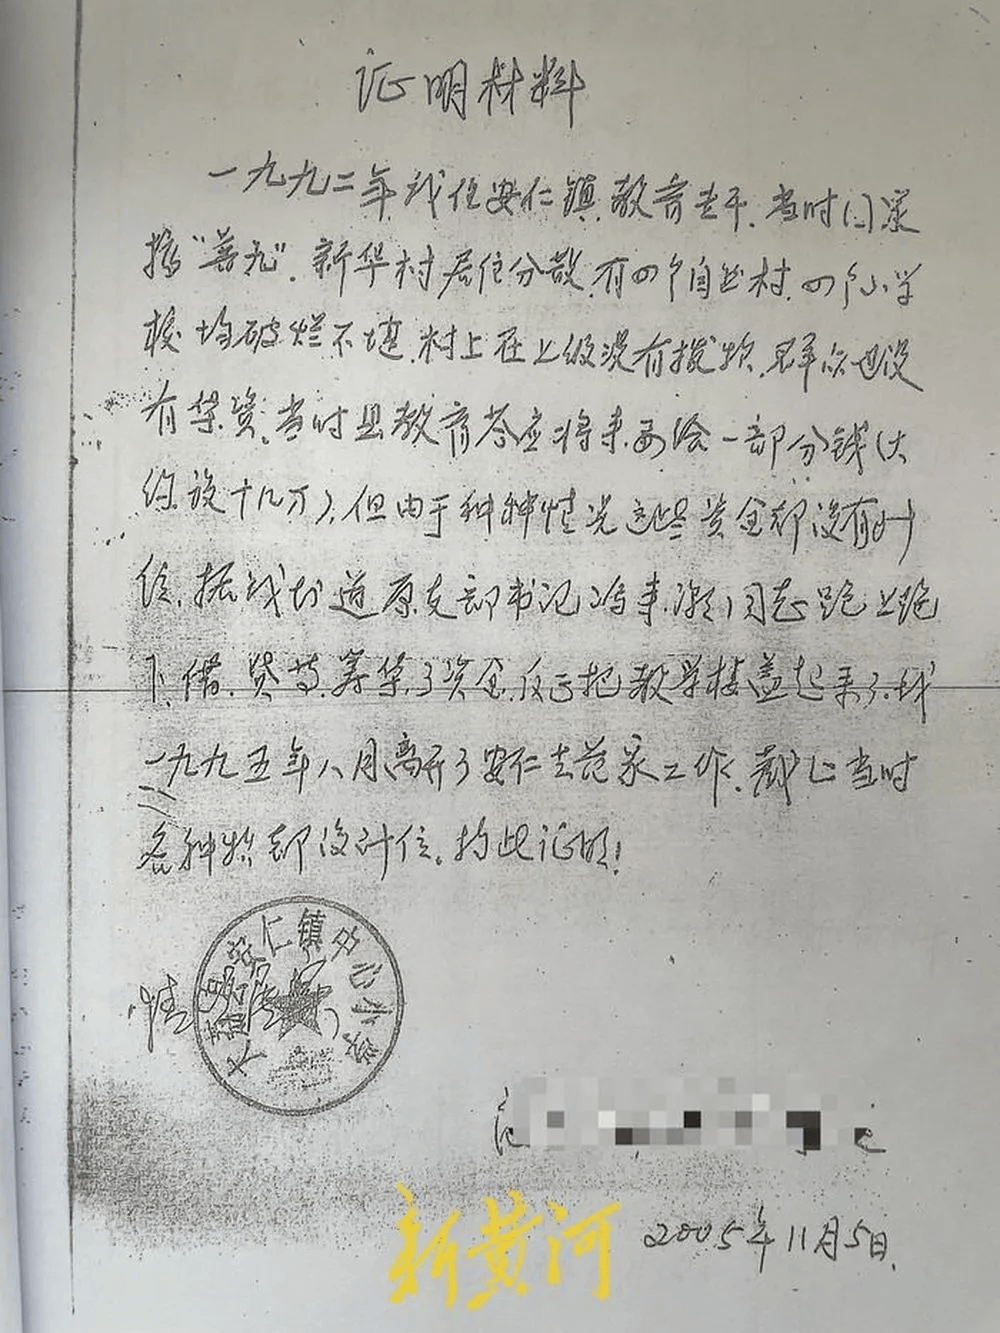 证明材料
一九九二年我任安仁镇教育专干.当时门派
摇"普九".新华村居住分散.有四个自然村.四个小学
校均破烂不堪.村上在上级没有拨款.群众也没
有集资.当时县教育答应将来要给一部分钱(大
约说十几万).但由于种种情况这些资金却没有到
位.据我知道原支部书记冯来潮同志跑上跑
下.借.贷等筹集了资金.反正把教学楼盖起来了.我
一九九五年八月离开了安仁去范家工作.截止当时
各种款都没到位.特此证明!
情况属实
安仁镇中心小学
2005年11月5日.
新黄河